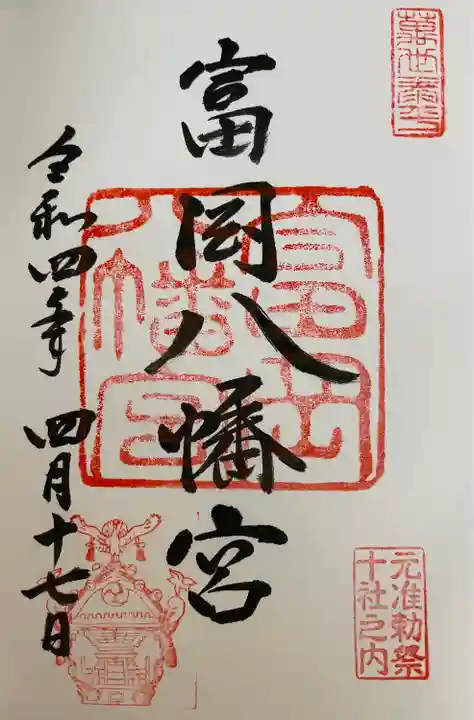 富岡八幡宮
令和四年 四月十七日
富岡八幡宮
元准勅祭
十社之内